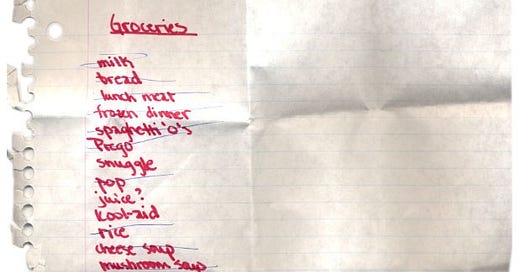 Groceries
milk
bread
lunch meat
frozen dinner
spaghetti'o's
Prego
snuggle
pop
juice?
Kool-aid
rice
cheese soup
mushroom soup